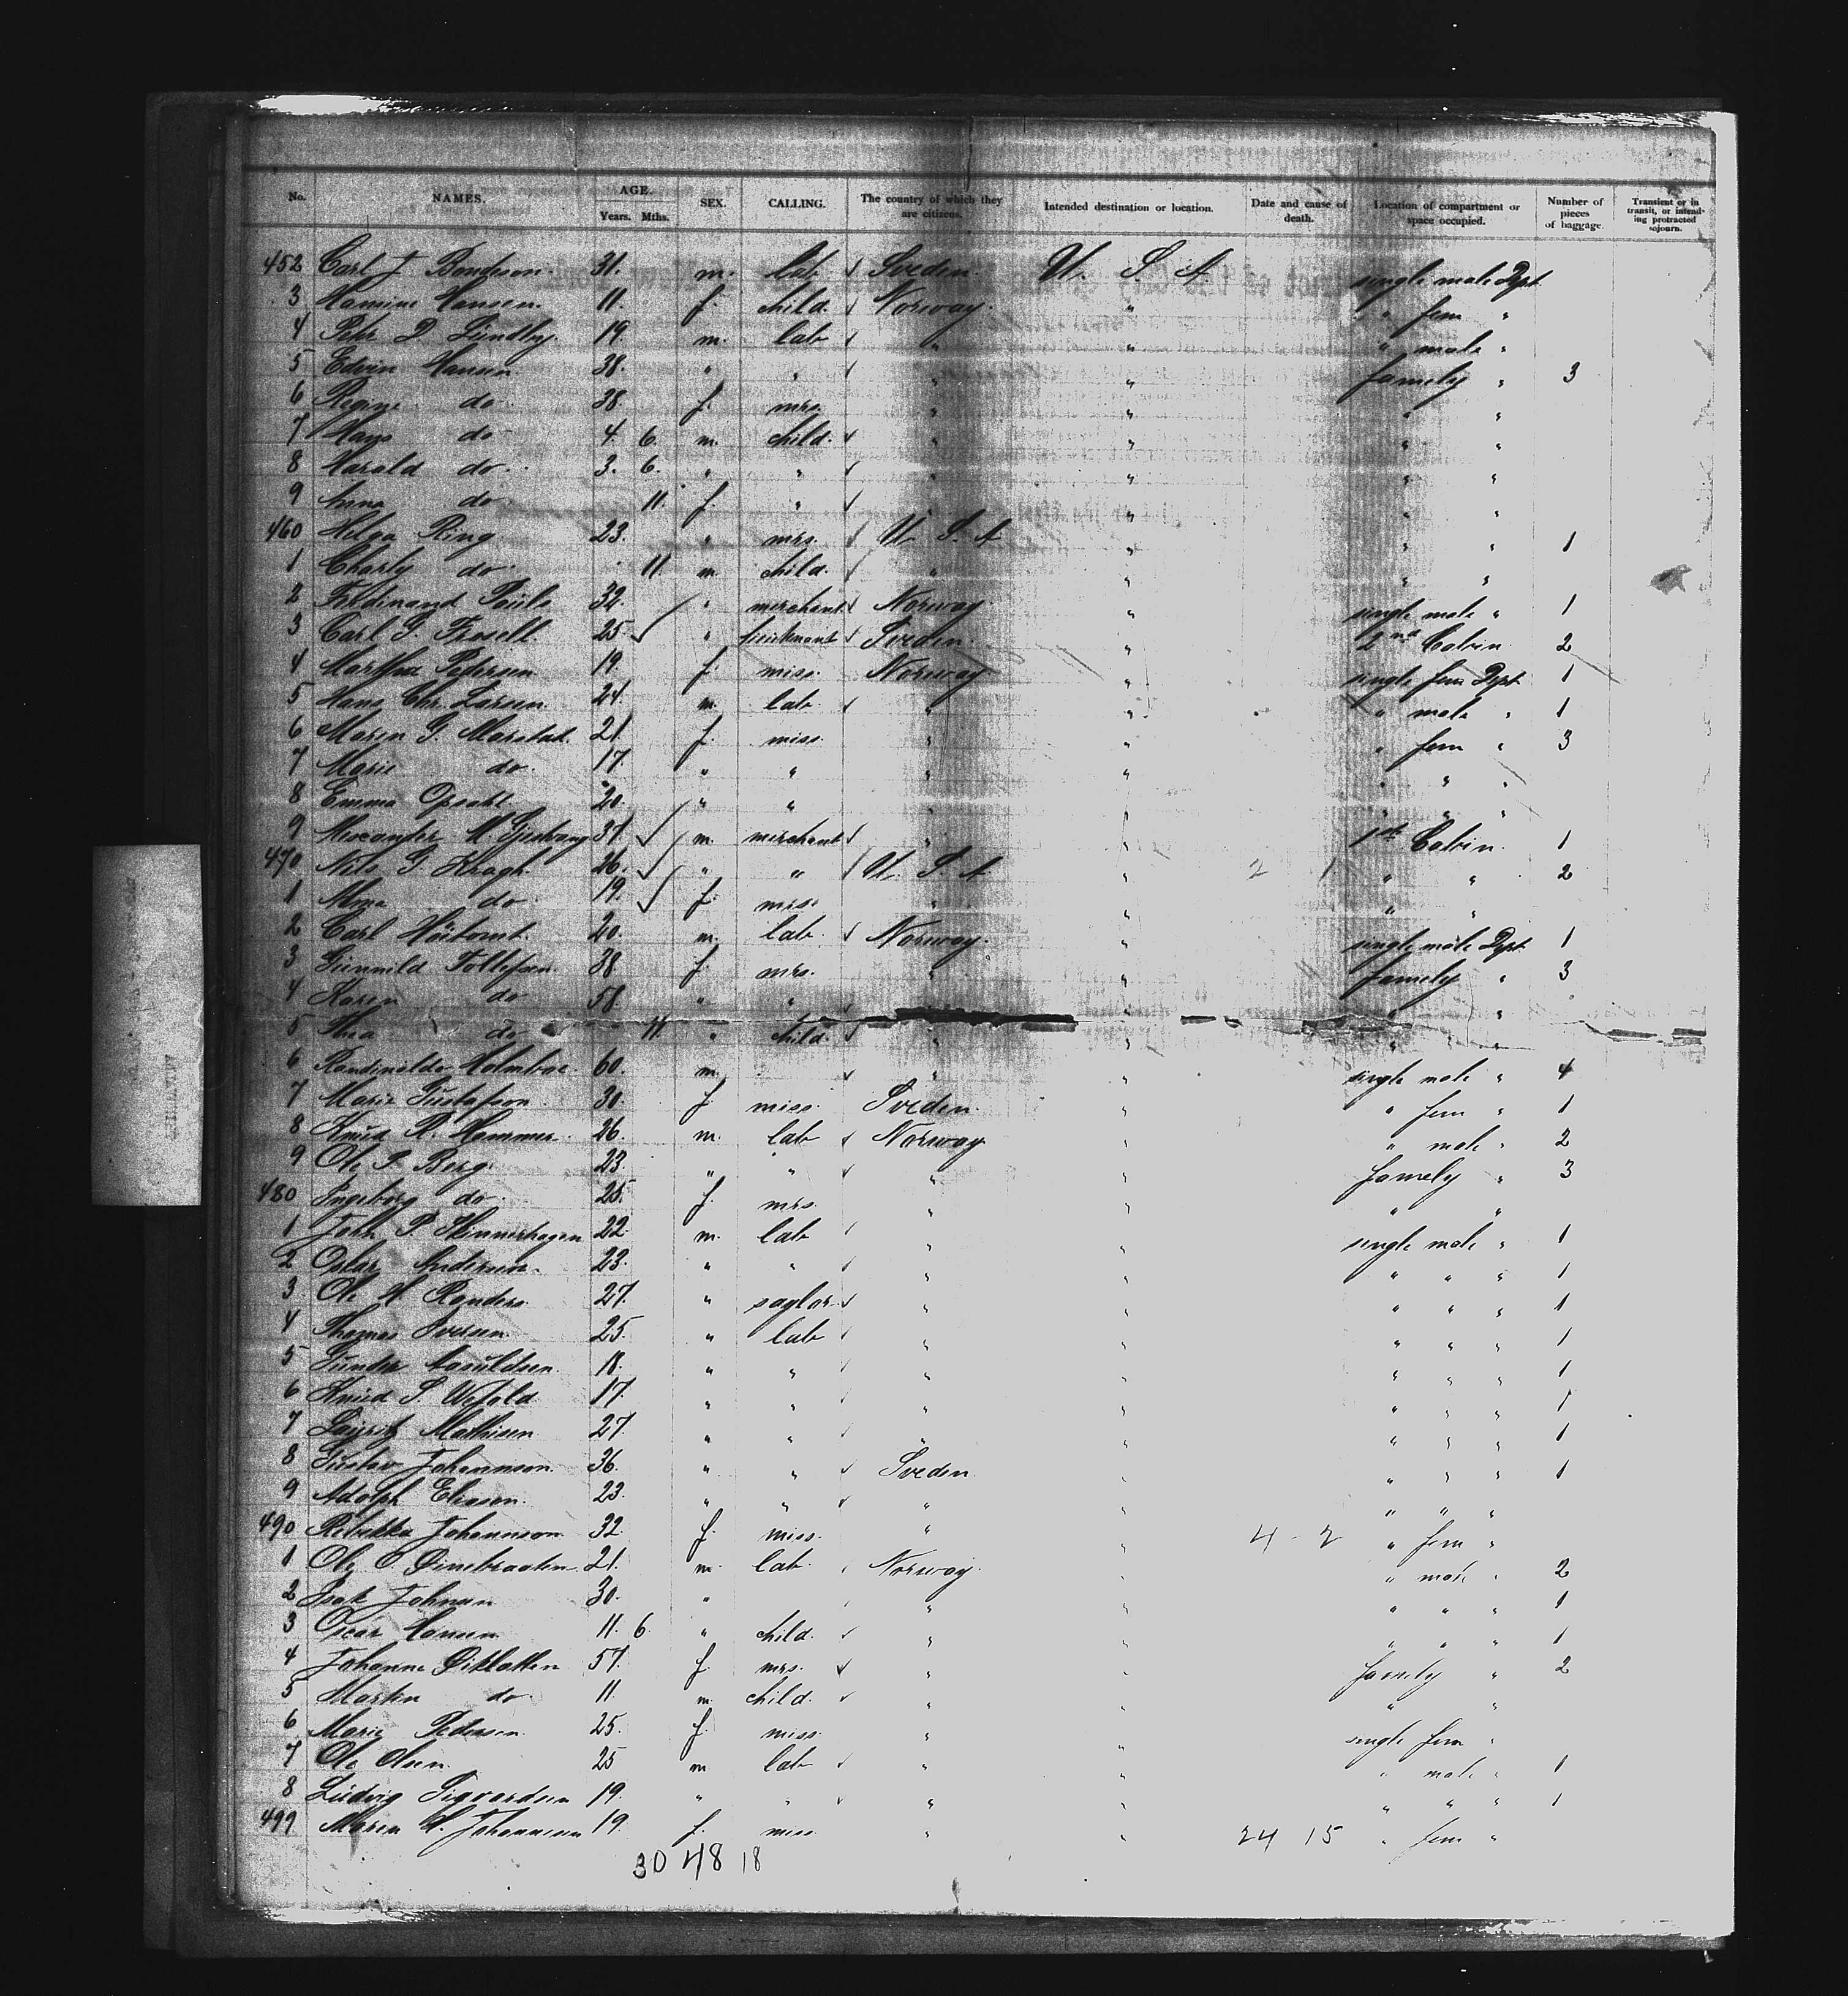 No. NAMES. AGE. Years. Mths. SEX. CALLING. The country of which they are citizens. Intended destination or location. Date and cause of death. Location of compartment or space occupied. Number of pieces of baggage. Transient or in transit, or intending protracted sojourn.
452 Carl J Bondeson. 31. m. lab Sveden. U. S. A. single male Dpt.
3 Hamine Hansen. 11. f. child. Norway. " " fem "
4 Petr D Lindby 19. m. lab " " " male "
5 Edvin Hansen 38. " " " " famely " 3
6 Regine do 38 f. mrs. " " " "
7 Hans do 4. 6. m. child. " " " "
8 Harald do. 3. 6. " " " " " "
9 Anna do 11. f. " " " " "
460 Helga Ring 23. " mrs. U. S. A " " " 1
1 Charly do 11. m. child. " " " "
2 Ferdinand Pauls 32. " merchant Norway. " single male " 1
3 Carl G. Frosell. 25 " lieutenant Sveden. " 2nd Cabin 2
4 Martha Petersen 19. f. miss. Norway " single fem Dpt 1
5 Hans Chr. Larsen 24. m. lab. " " " male " 1
6 Maren G. Marstad. 21. f. miss " " " fem " 3
7 Marie do. 17 " " " " " " "
8 Emma Opsahl 20. " " " " " " "
9 37. m. merchant " " 1st Cabin. 1
470 Nils G. Kragh. 26. " " U. S. A " 2 1 " " 2
1 Alma do 19. f. miss " " " "
2 Carl 20. m. lab. Norway. " single male Dpt 1
3 Gunnild Tollefsen 38 f. mrs. " " famely " 3
4 Karen do 58. " " " " " "
5 Thea do 11. " child. " " " "
6 Holmboe. 60. m. " " single male " 4
7 Marie Gustafson. 30. f. miss. Sveden. " " fem " 1
8 Knud R. Hammer. 26. m. lab Norway " " male " 2
9 Ole P. Berg. 23. " " " " famely " 3
480 Ingeborg do. 25. f. mrs. " " " "
1 Joh. P. Skinnerhagen 22. m. lab " " single male " 1
2 Oskar Andersen. 23. " " " " " " " 1
3 Ole H Randers 27. " saylor " " " " " 1
4 Thomas Iversen. 25. " lab " " " " " 1
5 Gunder Aasuldsen. 18. " " " " " " " 1
6 Knud S. 17. " " " " " " " 1
7 Lauritz Mathisen 27. " " " " " " " 1
8 Gustav Johannson. 36. " " Sveden " " " " 1
9 Adolph Eliasen. 23. " " " " " " "
490 Rebekka Johannson 32. f. miss. " " 4 - 2 " fem "
1 Ole O. 21. m. lab. Norway. " " male " 2
2 Isak Johnsen 30. " " " " " " 1
3 Oscar Hansen 11. 6. " child. " " " " " 1
4 Johanne 57. f. mrs. " " famely " 2
5 Martin do. 11. m. child. " " " "
6 Marie Pedersen. 25. f. miss. " " single fem "
7 Ole Olsen. 25 m lab " " " male " 1
8 Ludvig Sigvardsen 19. " " " " " " " 1
499 Maren A. Johannesen 19. f. miss " " 24 15 " fem "
30 48 18